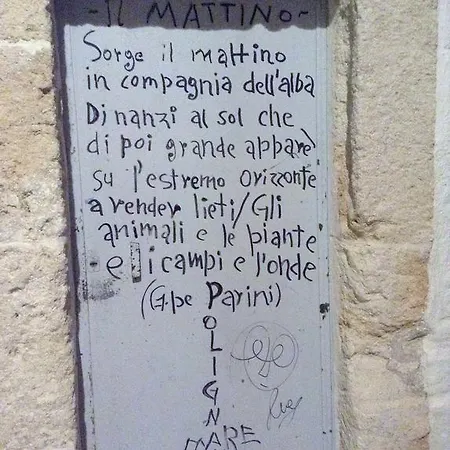 -IL MATTINO-
Sorge il mattino
in compagnia dell'alba
Dinanzi al sol che
di poi grande apparè
su l'estremo orizzonte
a render lieti/Gli
animali e le piante
e li campi e l'onde
(G.pe Parini)
POLIGNA
MARE